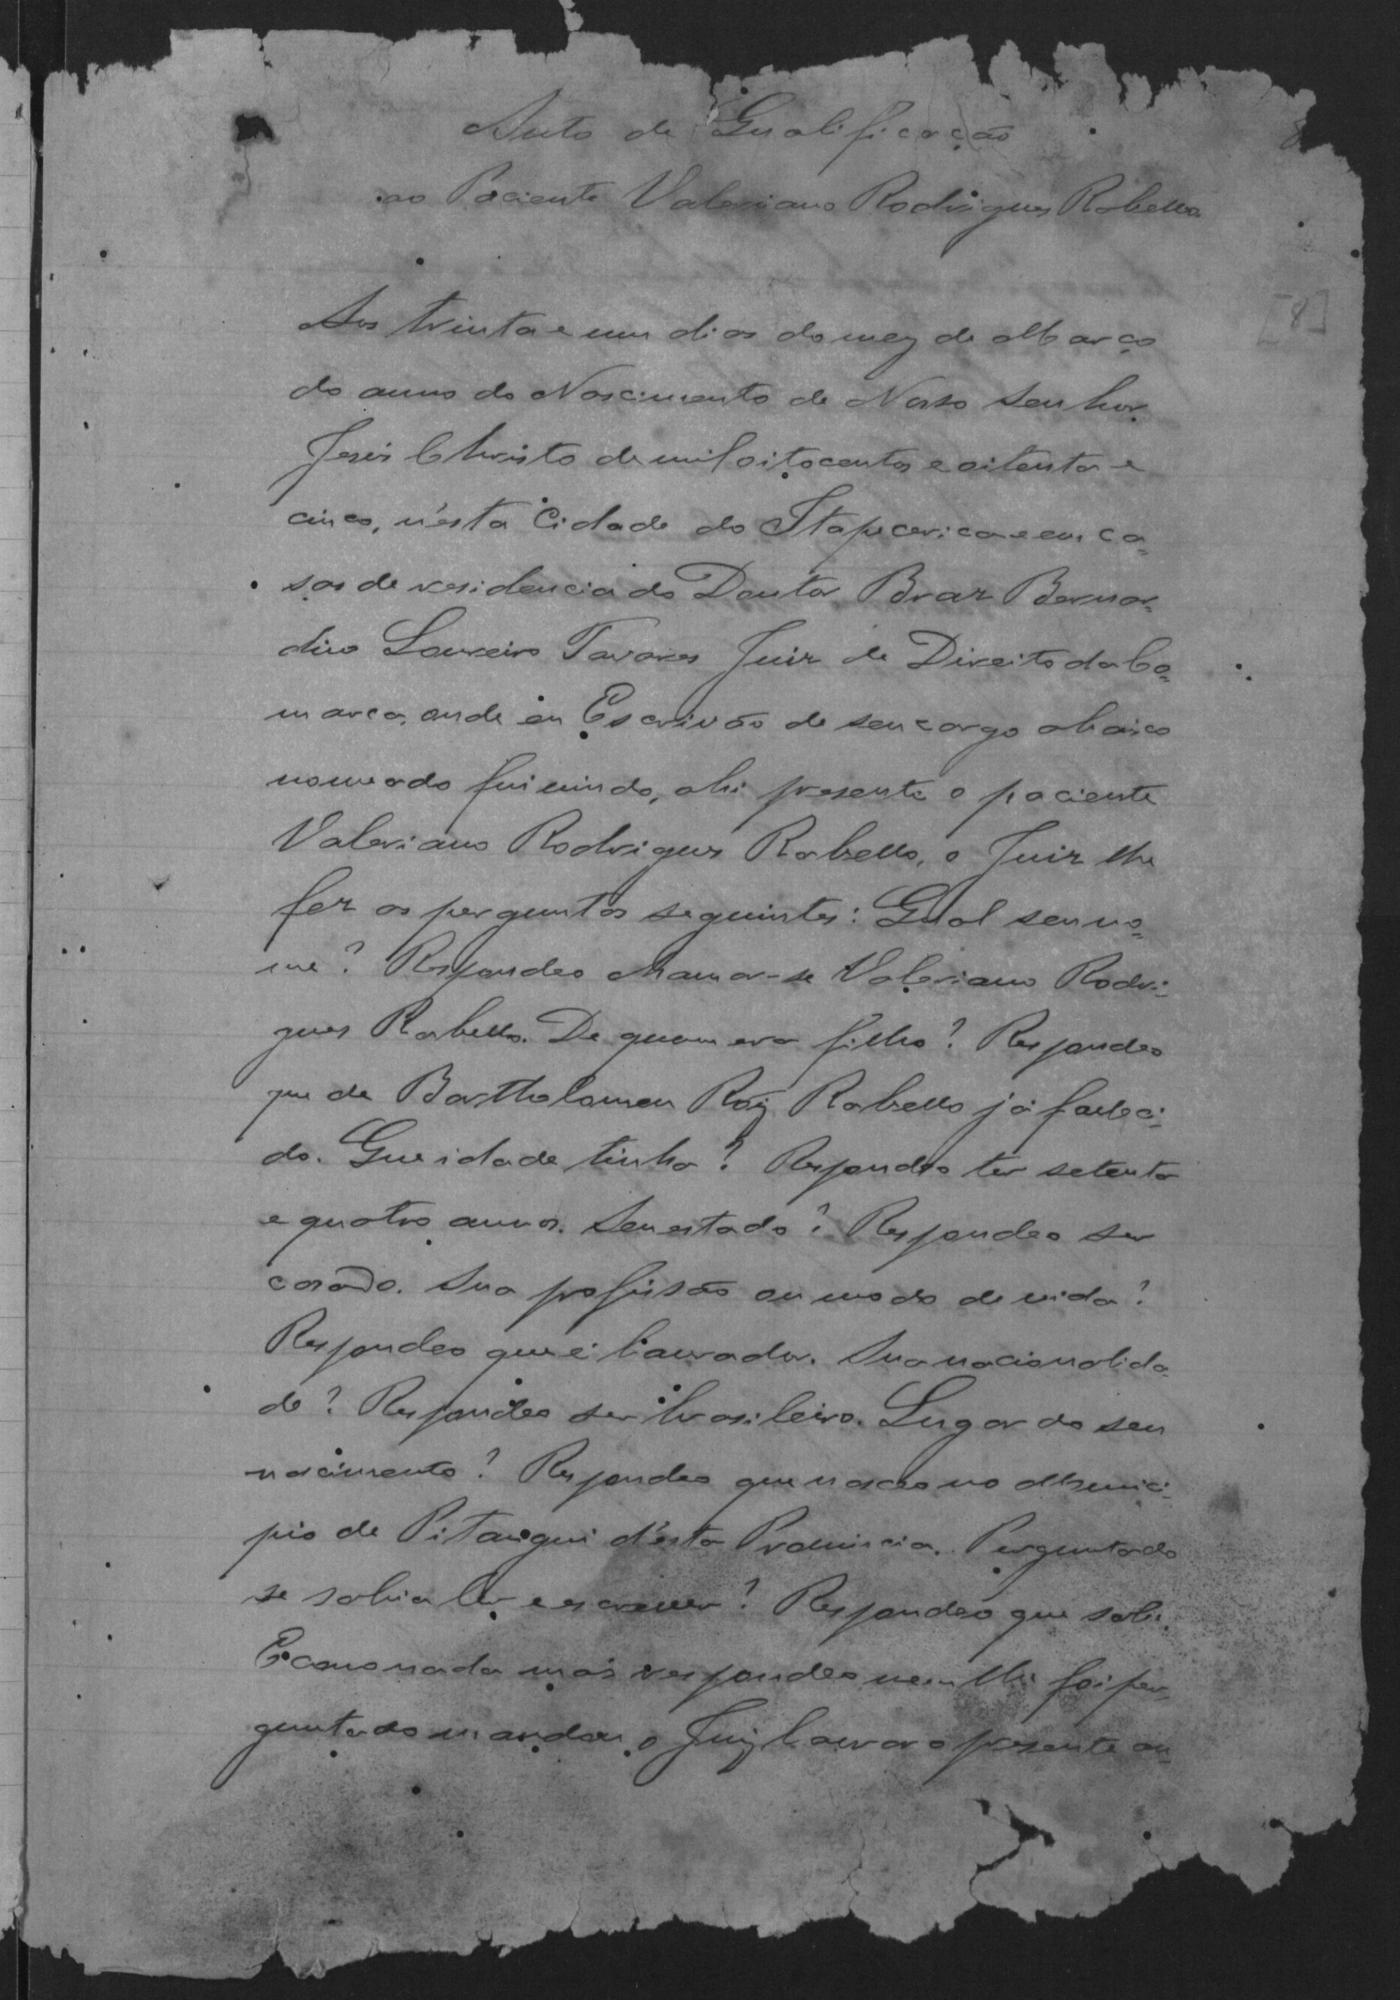 Auto de Qualificação
ao Paciente Valeriano Rodrigues Rabello
8
[8]
Aos trinta e um dias do mez de Março
do anno do Nascimento de Nosso Senhor
Jesus Christo de mil oitocentos e oitenta e
cinco, n'esta Cidade do Itapecerica e em ca-
sas de residencia do Doutor Braz Bernar-
dino Loureiro Tavares Juiz de Direito da Co-
marca, onde eu Escrivão de seu cargo abaixo
nomeado fui vindo, ahi presente o paciente
Valeriano Rodrigues Rabello, o Juiz lhe
fez as perguntas seguintes: Qual seu no-
me? Respondeo chamar-se Valeriano Rodri-
gues Rabello. De quem era filho? Respondeo
que de Bartholomeu Roiz Rabello já falleci-
do. Que idade tinha? Respondeo ter setenta
e quatro annos. Seu estado? Respondeo ser
casado. Sua profissão ou modo de vida?
Respondeo que é lavrador. Sua nacionalida-
de? Respondeo ser brasileiro. Lugar do seu
nascimento? Respondeo que nasceo no Munici-
pio de Pitangui d'esta Provincia. Perguntado
se sabia ler e escrever? Respondeo que sabe.
E como nada mais respondeo nem lhe foi per-
guntado mandou o Juiz lavrar o presente au-